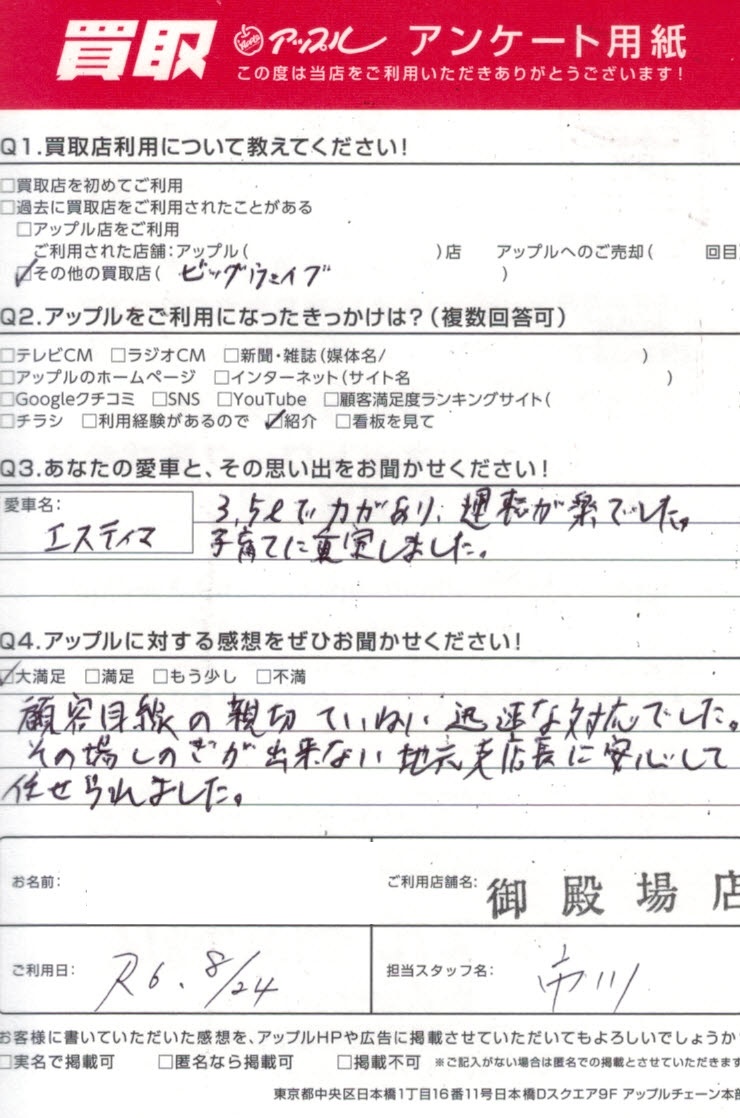 買取 アップル アンケート用紙
この度は当店をご利用いただきありがとうございます!
Q1.買取店利用について教えてください!
□買取店を初めてご利用
□過去に買取店をご利用されたことがある
□アップル店をご利用
ご利用された店舗:アップル( )店 アップルへのご売却( 回目
☑その他の買取店( ビッグウェイブ )
Q2.アップルをご利用になったきっかけは?(複数回答可)
□テレビCM □ラジオCM □新聞・雑誌(媒体名/ )
□アップルのホームページ □インターネット(サイト名 )
□Googleクチコミ □SNS □YouTube □顧客満足度ランキングサイト(
□チラシ □利用経験があるので ☑紹介 □看板を見て
Q3.あなたの愛車と、その思い出をお聞かせください!
愛車名: エスティマ
3,5ℓで力があり、運転が楽でした。
子育てに重宝しました。
Q4.アップルに対する感想をぜひお聞かせください!
☑大満足 □満足 □もう少し □不満
顧客目線の親切ていねい迅速な対応でした。
その場しのぎが出来ない地元支店長に安心して
任せられました。
お名前: ご利用店舗名: 御殿場店
ご利用日: R6.8/24 担当スタッフ名: 市川
お客様に書いていただいた感想を、アップルHPや広告に掲載させていただいてもよろしいでしょうか
□実名で掲載可 □匿名なら掲載可 □掲載不可 ※ご記入がない場合は匿名での掲載とさせていただきます
東京都中央区日本橋1丁目16番11号日本橋Dスクエア9F アップルチェーン本部